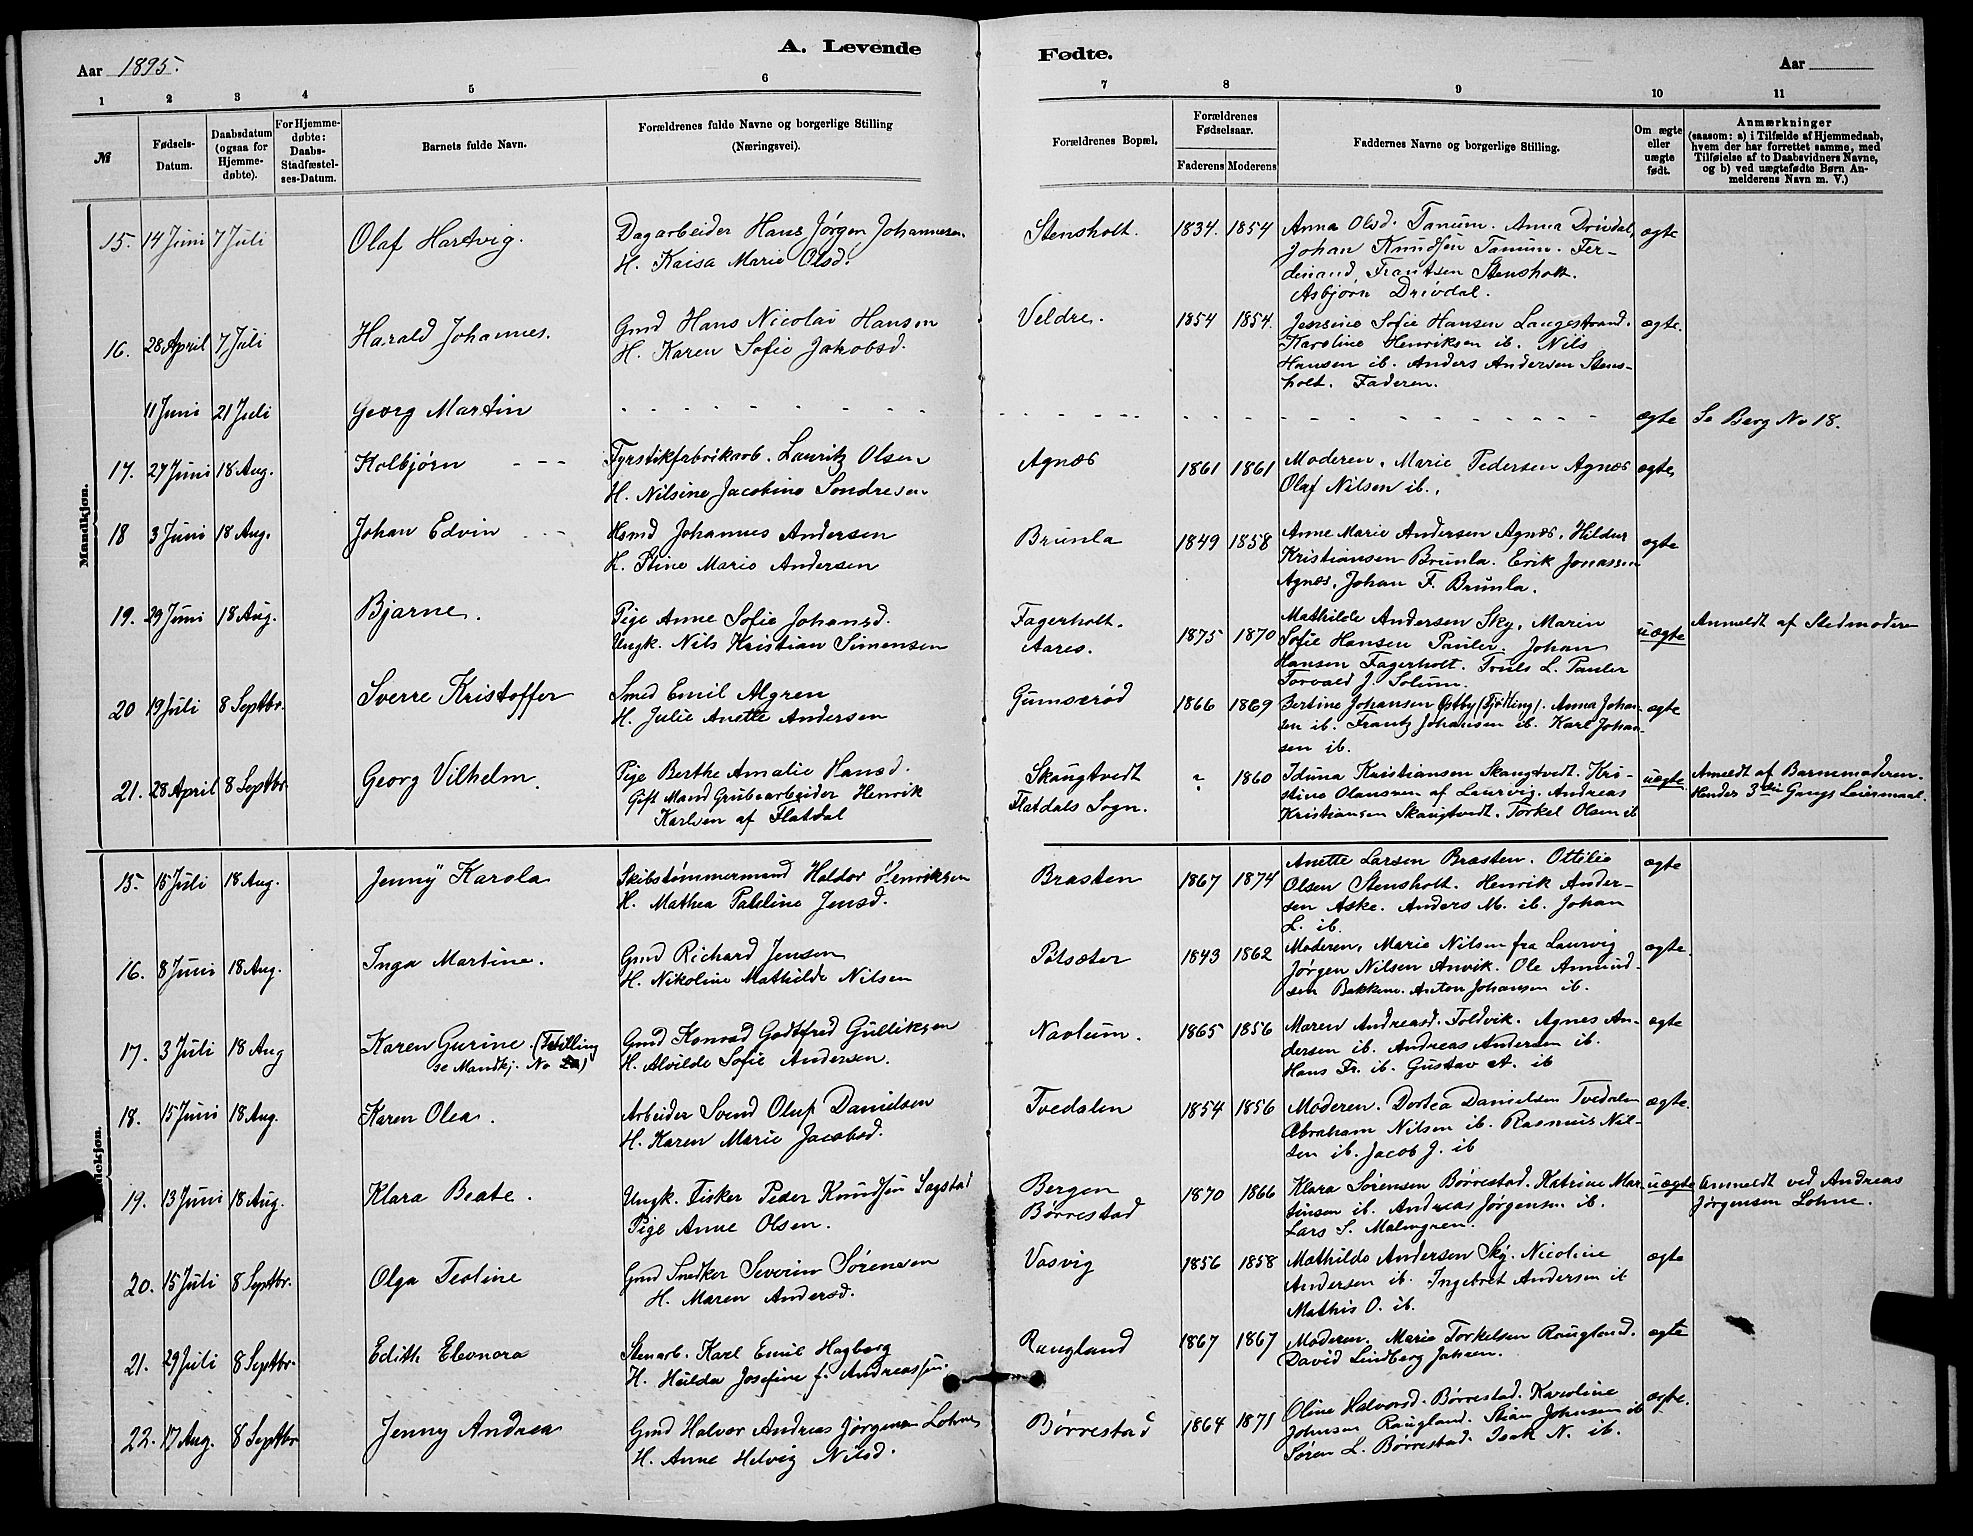 A. Levende Fødte.
Aar 1895. Aar
1 2 3 4 5 6 7 8 9 10 11
№
Fødsels-Datum.
Daabsdatum (ogsaa for Hjemmedøbte).
For Hjemmedøbte: Daabs-Stadfæstelses-Datum.
Barnets fulde Navn.
Forældrenes fulde Navne og borgerlige Stilling (Næringsvei).
Forældrenes Bopæl.
Forældrenes Fødselsaar.
Faderens Moderens
Faddernes Navne og borgerlige Stilling.
Om ægte eller uægte født.
Anmærkninger (saasom: a) i Tilfælde af Hjemmedaab, hvem der har forrettet samme, med Tilføielse af to Daabsvidners Navne, og b) ved uægtefødte Børn Anmelderens Navn m. V.)
Mandkjøn.
15. 14 Juni 7 Juli Olaf Hartvig. Dagarbeider Hans Jørgen Johannesen. Stensholt. 1834. 1854 Anna Olsd. Tanum. Anna Drivdal, ægte
H. Kaisa Marie Olsd. Johan Knudsen Tanum. Fer-
dinand Frantsen Stensholt.
Asbjørn Drivdal.
16. 28 April 7 Juli Harald Johannes. Gmd Hans Nicolai Hansen Veldre. 1854 1854. Jensine Sofie Hansen Langestrand. ægte.
H. Karen Sofie Jakobsd. Karoline Henriksen ib. Nils
Hansen ib. Anders Andersen Stens-
holt. Faderen.
11 Juni 21 Juli Georg Martin ægte Se Berg No 18.
17. 27 Juni 18 Aug. Kolbjørn Fyrstikfabrikarb. Lauritz Olsen Agnæs 1861 1861 Moderen. Marie Pedersen Agnæs ægte,
H. Nilsine Jacobine Sondresen Olaf Nilsen ib.
18 3 Juni 18 Aug. Johan Edvin Hsmd Johannes Andersen Brunla 1849 1858 Anne Marie Andersen Agnæs. Hildur ægte
H. Stine Marie Andersen Kristiansen Brunla. Erik Jonassen
Agnæs. Johan F. Brunla.
19. 29 Juni 18 Aug. Bjarne. Pige Anne Sofie Johansd. Fagerholt. 1875 1870 Mathilde Andersen Sky. Marin uægte Anmeldt af Stedmoderen
Ungk. Nils Kristian Simensen Aares. Sofie Hansen Pauler. Johan
Hansen Fagerholt. Truls L. Pauler
Torvald J. Solum.
20 19 Juli 8 Septbr. Sverre Kristoffer Smed Emil Algren Gumserød 1866 1869 Bertine Johansen Østby (Tjølling). Anna Johan- ægte
H. Julie Anette Andersen sen ib. Frantz Johansen ib. Karl Johan-
sen ib.
21. 28 April 8 Septbr. Georg Vilhelm. Pige Berthe Amalie Hansd. Skaugtvedt ? 1860 Iduna Kristiansen Skaugtvedt. Kri- uægte Anmeldt af Barnemoderen.
Gift Mand Grubearbeider Henrik Flatdals Sogn. stine Olaussen af Laurvig. Andreas Hendes 3die Gangs Leiermaal.
Karlsen af Flatdal Kristiansen Skaugtvedt. Torkel Olsen ib
15. 15 Juli 18 Aug. Jenny Karola Skibstømmermand Haldor Henriksen Brasten 1867 1874 Anette Larsen Brasten. Ottilie ægte
H. Mathea Pauline Jensd. Olsen Stensholt. Henrik Ander-
sen Aske. Anders M. ib. Johan
L. ib.
16. 8 Juni 18 Aug. Inga Martine. Gmd Richard Jensen Pøtsæter 1843 1862 Moderen, Marie Nilsen fra Laurvig ægte.
H. Nikoline Mathilde Nilsen Jørgen Nilsen Anvik. Ole Amund-
sen Bakkene. Anton Johansen ib.
17. 3 Juli 18 Aug Karen Gurine. (Tvilling Gmd Konrad Godtfred Gulliksen Navlum. 1865 1856 Maren Andreasd. Foldvik. Agnes An- ægte
se Mandkj. No ) H. Alvilde Sofie Andersen. dersen ib. Andreas Andersen ib.
Hans Fr. ib. Gustav A. ib
18. 15 Juni 18 Aug. Karen Olea. Arbeider Svend Oluf Danielsen Tvedalen 1854 1856 Moderen. Dortea Danielsen Tvedalen ægte.
H. Karen Marie Jacobsd. Abraham Nilsen ib. Rasmus Nil-
sen ib. Jacob J. ib
19. 13 Juni 18 Aug. Klara Beate. Ungk. Fisker Peder Knudsen Sagstad Bergen 1870 1866 Klara Sørensen Børrestad. Katrine Mar- uægte Anmeldt ved Andreas
Pige Anne Olsen. Børrestad tinsen ib. Andreas Jørgensen ib. Jørgensen Lohne.
Lars S. Malmgren.
20. 15 Juli 8 Septbr. Olga Teoline Gmd Snedker Severin Sørensen Vasvig 1856 1858 Mathilde Andersen Sky. Nicoline ægte
H. Maren Andersd. Andersen ib. Ingebret Andersen ib
Mathis O. ib.
21. 29 Juli 8 Septbr. Edith Eleonora Stenarb. Karl Emil Hagberg Raugland 1867 1867 Moderen. Marie Torkelsen Raugland. ægte
H. Hulda Josefine f. Andreassen. David Lindberg Jahren.
22. 17 Aug. 8 Septbr Jenny Andrea Gmd Halvor Andreas Jørgensen Lohne Børrestad 1864 1871 Oline Halvorsd. Børrestad. Karoline ægte.
H. Anne Helvig Nilsd. Johnsen Raugland. Stian Johnsen ib
Søren L. Børrestad. Isak N. ib.